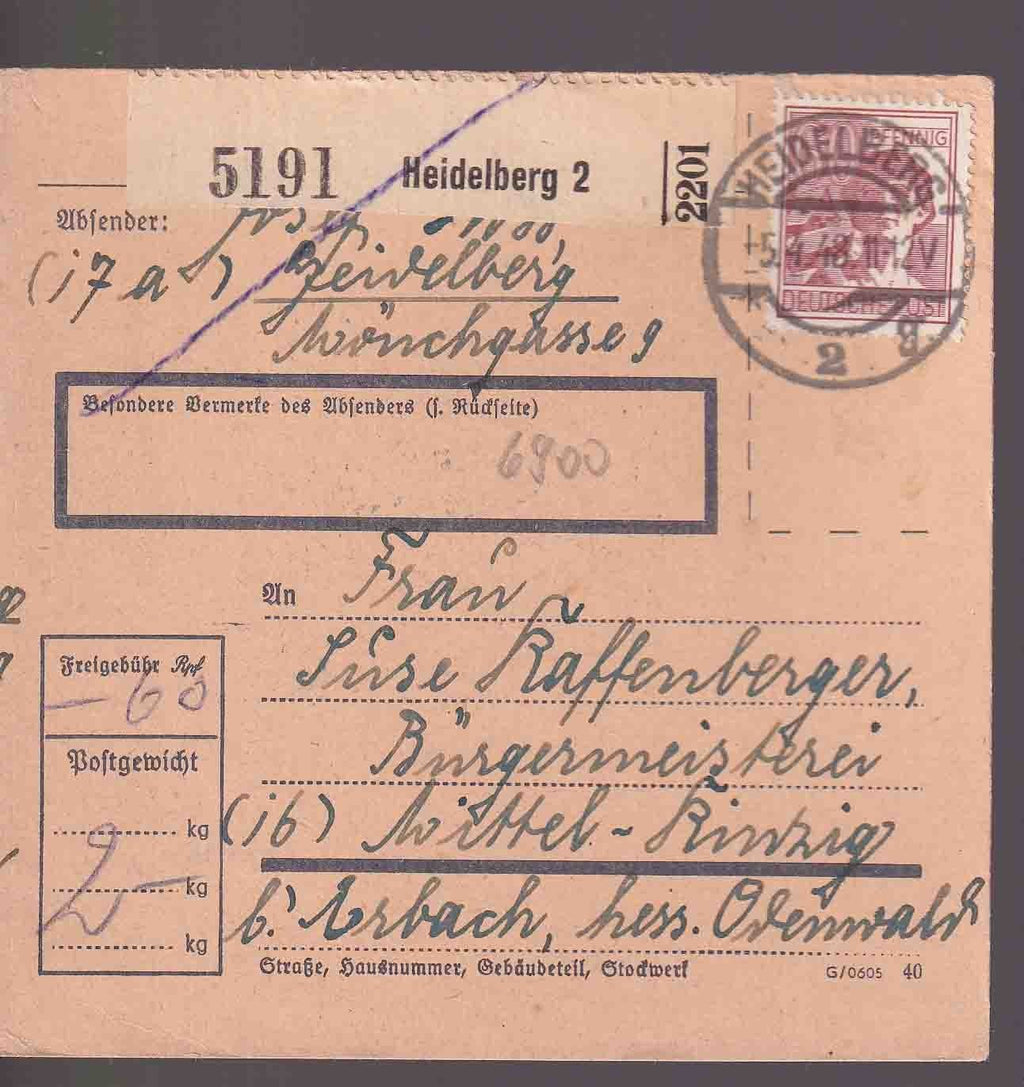 5191 Heidelberg 2 2201
60 PFENNIG
DEUTSCHE POST
HEIDELBERG
-5.4.48.11-12V
2 g
Absender: Josef
(17a) Heidelberg
Mönchgasse 9
Besondere Vermerke des Absenders (s. Rückseite)
6900
An Frau
Suse Raffenberger,
Bürgermeisterei
(16) Mittel-Kinzig
b. Erbach, hess. Odenwald
Straße, Hausnummer, Gebäudeteil, Stockwerk
G/0605 40
Freigebühr Rpf
– 60
Postgewicht
kg
2 – kg
kg